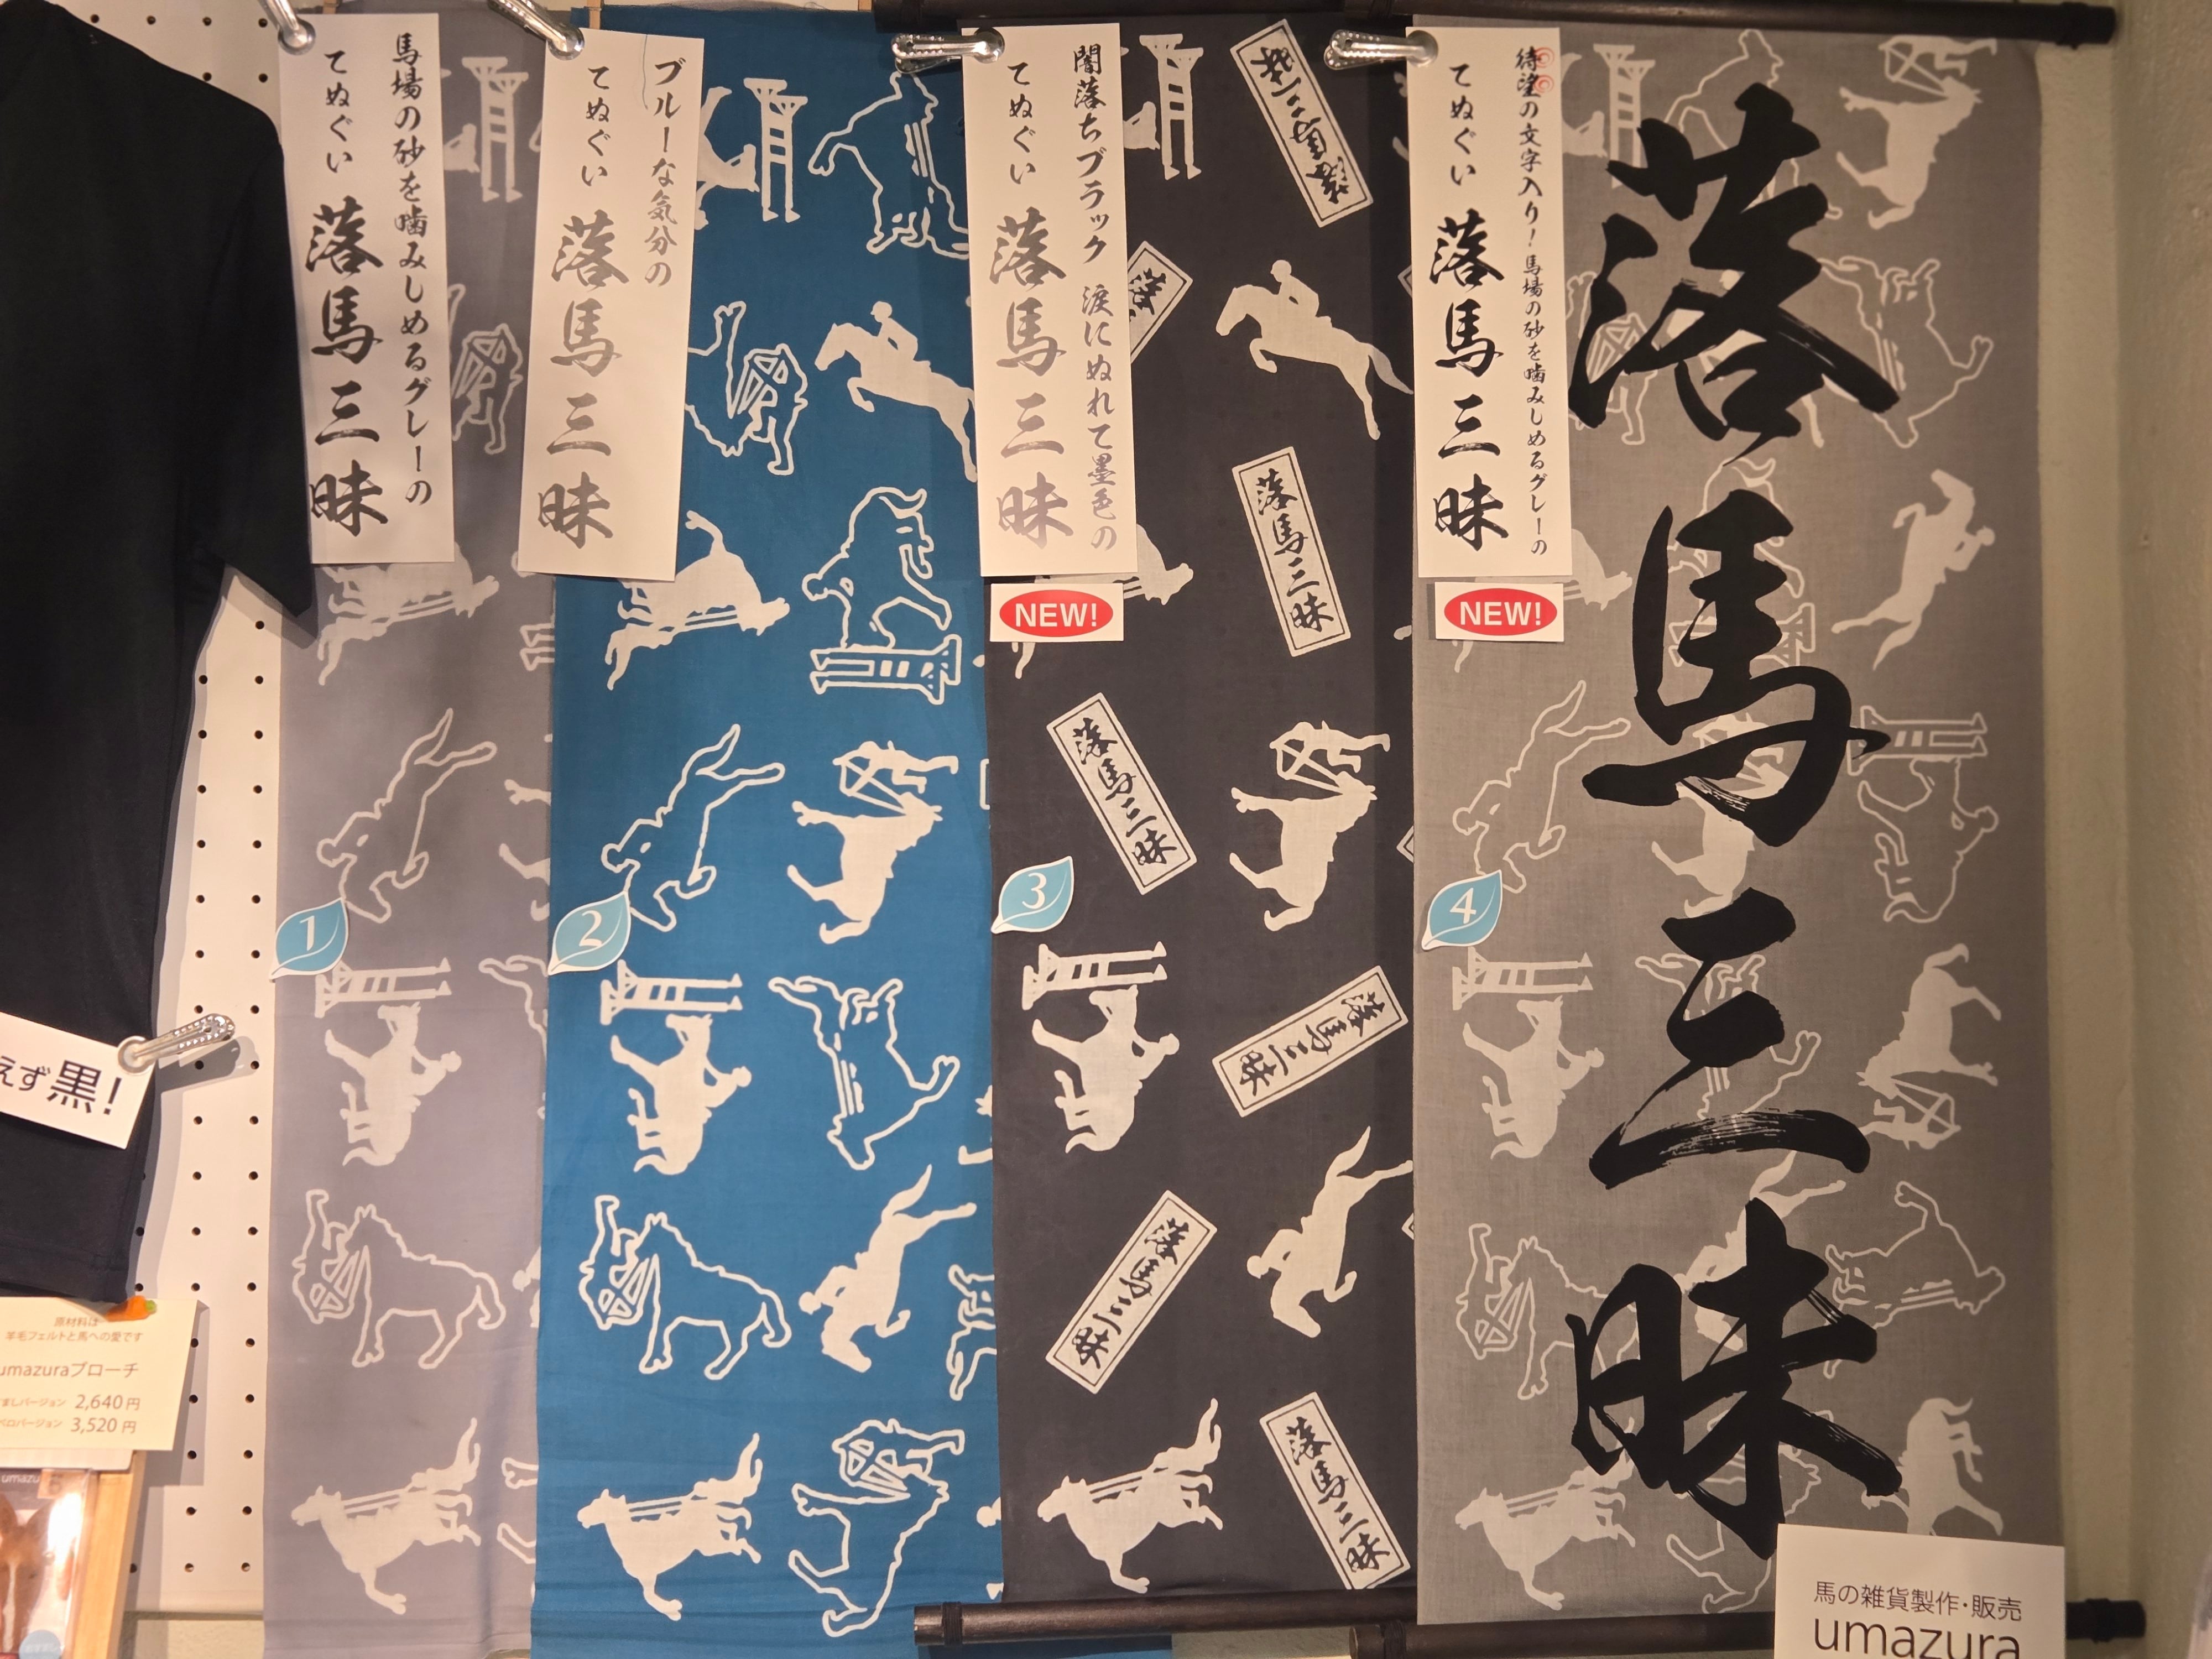 馬場の砂を噛みしめるグレーの
てぬぐい 落馬三昧
ブルーな気分の
てぬぐい 落馬三昧
闇落ちブラック 涙にぬれて墨色の
てぬぐい 落馬三昧
NEW!
待望の文字入り！馬場の砂を噛みしめるグレーの
てぬぐい 落馬三昧
NEW!
落馬三昧
落馬三昧
落馬三昧
落馬三昧
落馬三昧
落馬三昧
落
1
2
3
4
えず黒!
原材料は
羊毛フェルトと馬への愛です
umazuraブローチ
ましバージョン 2,640円
ベロバージョン 3,520円
umazu
馬の雑貨製作・販売
umazura